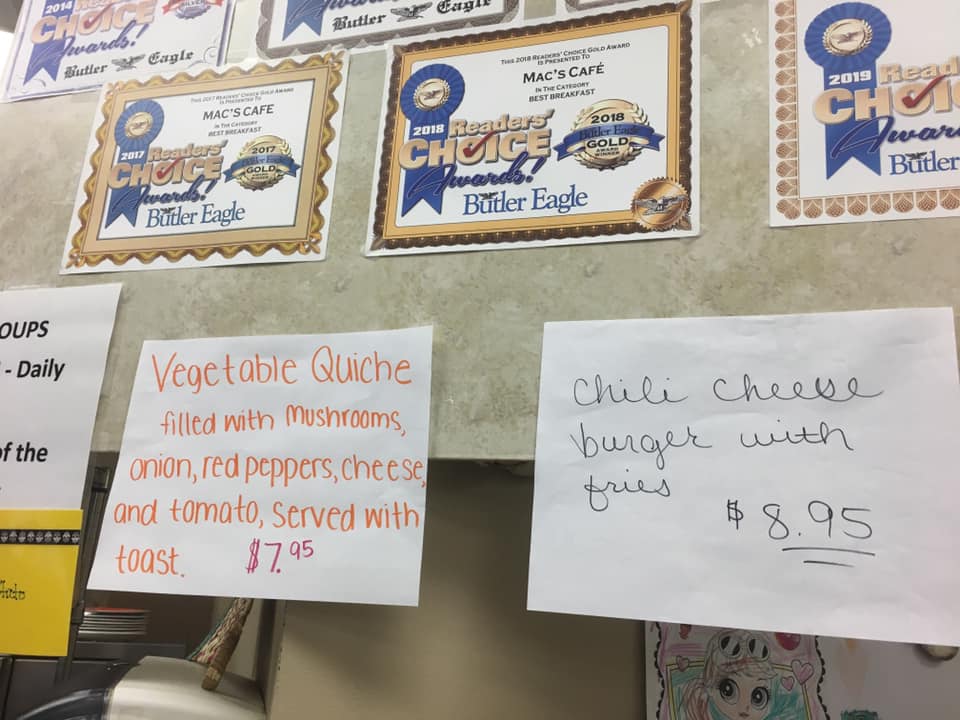 2014
CHOICE
Awards!
Butler Eagle
Butler Eagle
THIS 2017 READERS' CHOICE GOLD AWARD
IS PRESENTED TO
MAC'S CAFE
IN THE CATEGORY
BEST BREAKFAST
2017 Readers'
CHOICE
Awards!
Butler Eagle
2017
Butler Eagle
GOLD
AWARD WINNER
THIS 2018 READERS' CHOICE GOLD AWARD
IS PRESENTED TO
MAC'S CAFÉ
IN THE CATEGORY
BEST BREAKFAST
2018 Readers'
CHOICE
Awards!
Butler Eagle
2018
Butler Eagle
GOLD
AWARD
WINNER
2019 Read
CHOI
Awar
Butler
OUPS
- Daily
of the
Vegetable Quiche
filled with Mushrooms,
onion, red peppers, cheese,
and tomato, served with
toast. $7.95
Chili cheese
burger with
fries
$8.95